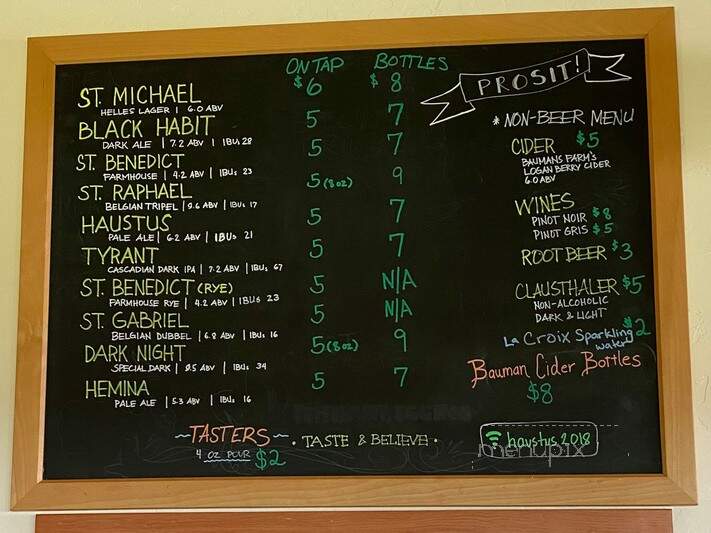 ON TAP BOTTLES
ST. MICHAEL $6 $8
HELLES LAGER | 6.0 ABV
BLACK HABIT 5 7
DARK ALE | 7.2 ABV | IBUs 28
ST. BENEDICT 5 7
FARMHOUSE | 4.2 ABV | IBUs 23
ST. RAPHAEL 5 (8oz) 9
BELGIAN TRIPEL | 9.6 ABV | IBUs 17
HAUSTUS 5 7
PALE ALE | 6.2 ABV | IBUs 21
TYRANT 5 7
CASCADIAN DARK IPA | 7.2 ABV | IBUs 67
ST. BENEDICT (RYE) 5 N/A
FARMHOUSE RYE | 4.2 ABV | IBUs 23
ST. GABRIEL 5 N/A
BELGIAN DUBBEL | 6.8 ABV | IBUs 16
DARK NIGHT 5 (8oz) 9
SPECIAL DARK | 9.5 ABV | IBUs 34
HEMINA 5 7
PALE ALE | 5.3 ABV | IBUs 16
~TASTERS~
4 OZ POUR $2
• TASTE & BELIEVE •
PROSIT!
* NON-BEER MENU
CIDER $5
BAUMANS FARM'S
LOGAN BERRY CIDER
6.0 ABV
WINES
PINOT NOIR $8
PINOT GRIS $5
ROOT BEER $3
CLAUSTHALER $5
NON-ALCOHOLIC
DARK & LIGHT
La Croix Sparkling $2
water
Bauman Cider Bottles
$8
haustus 2018
menupix